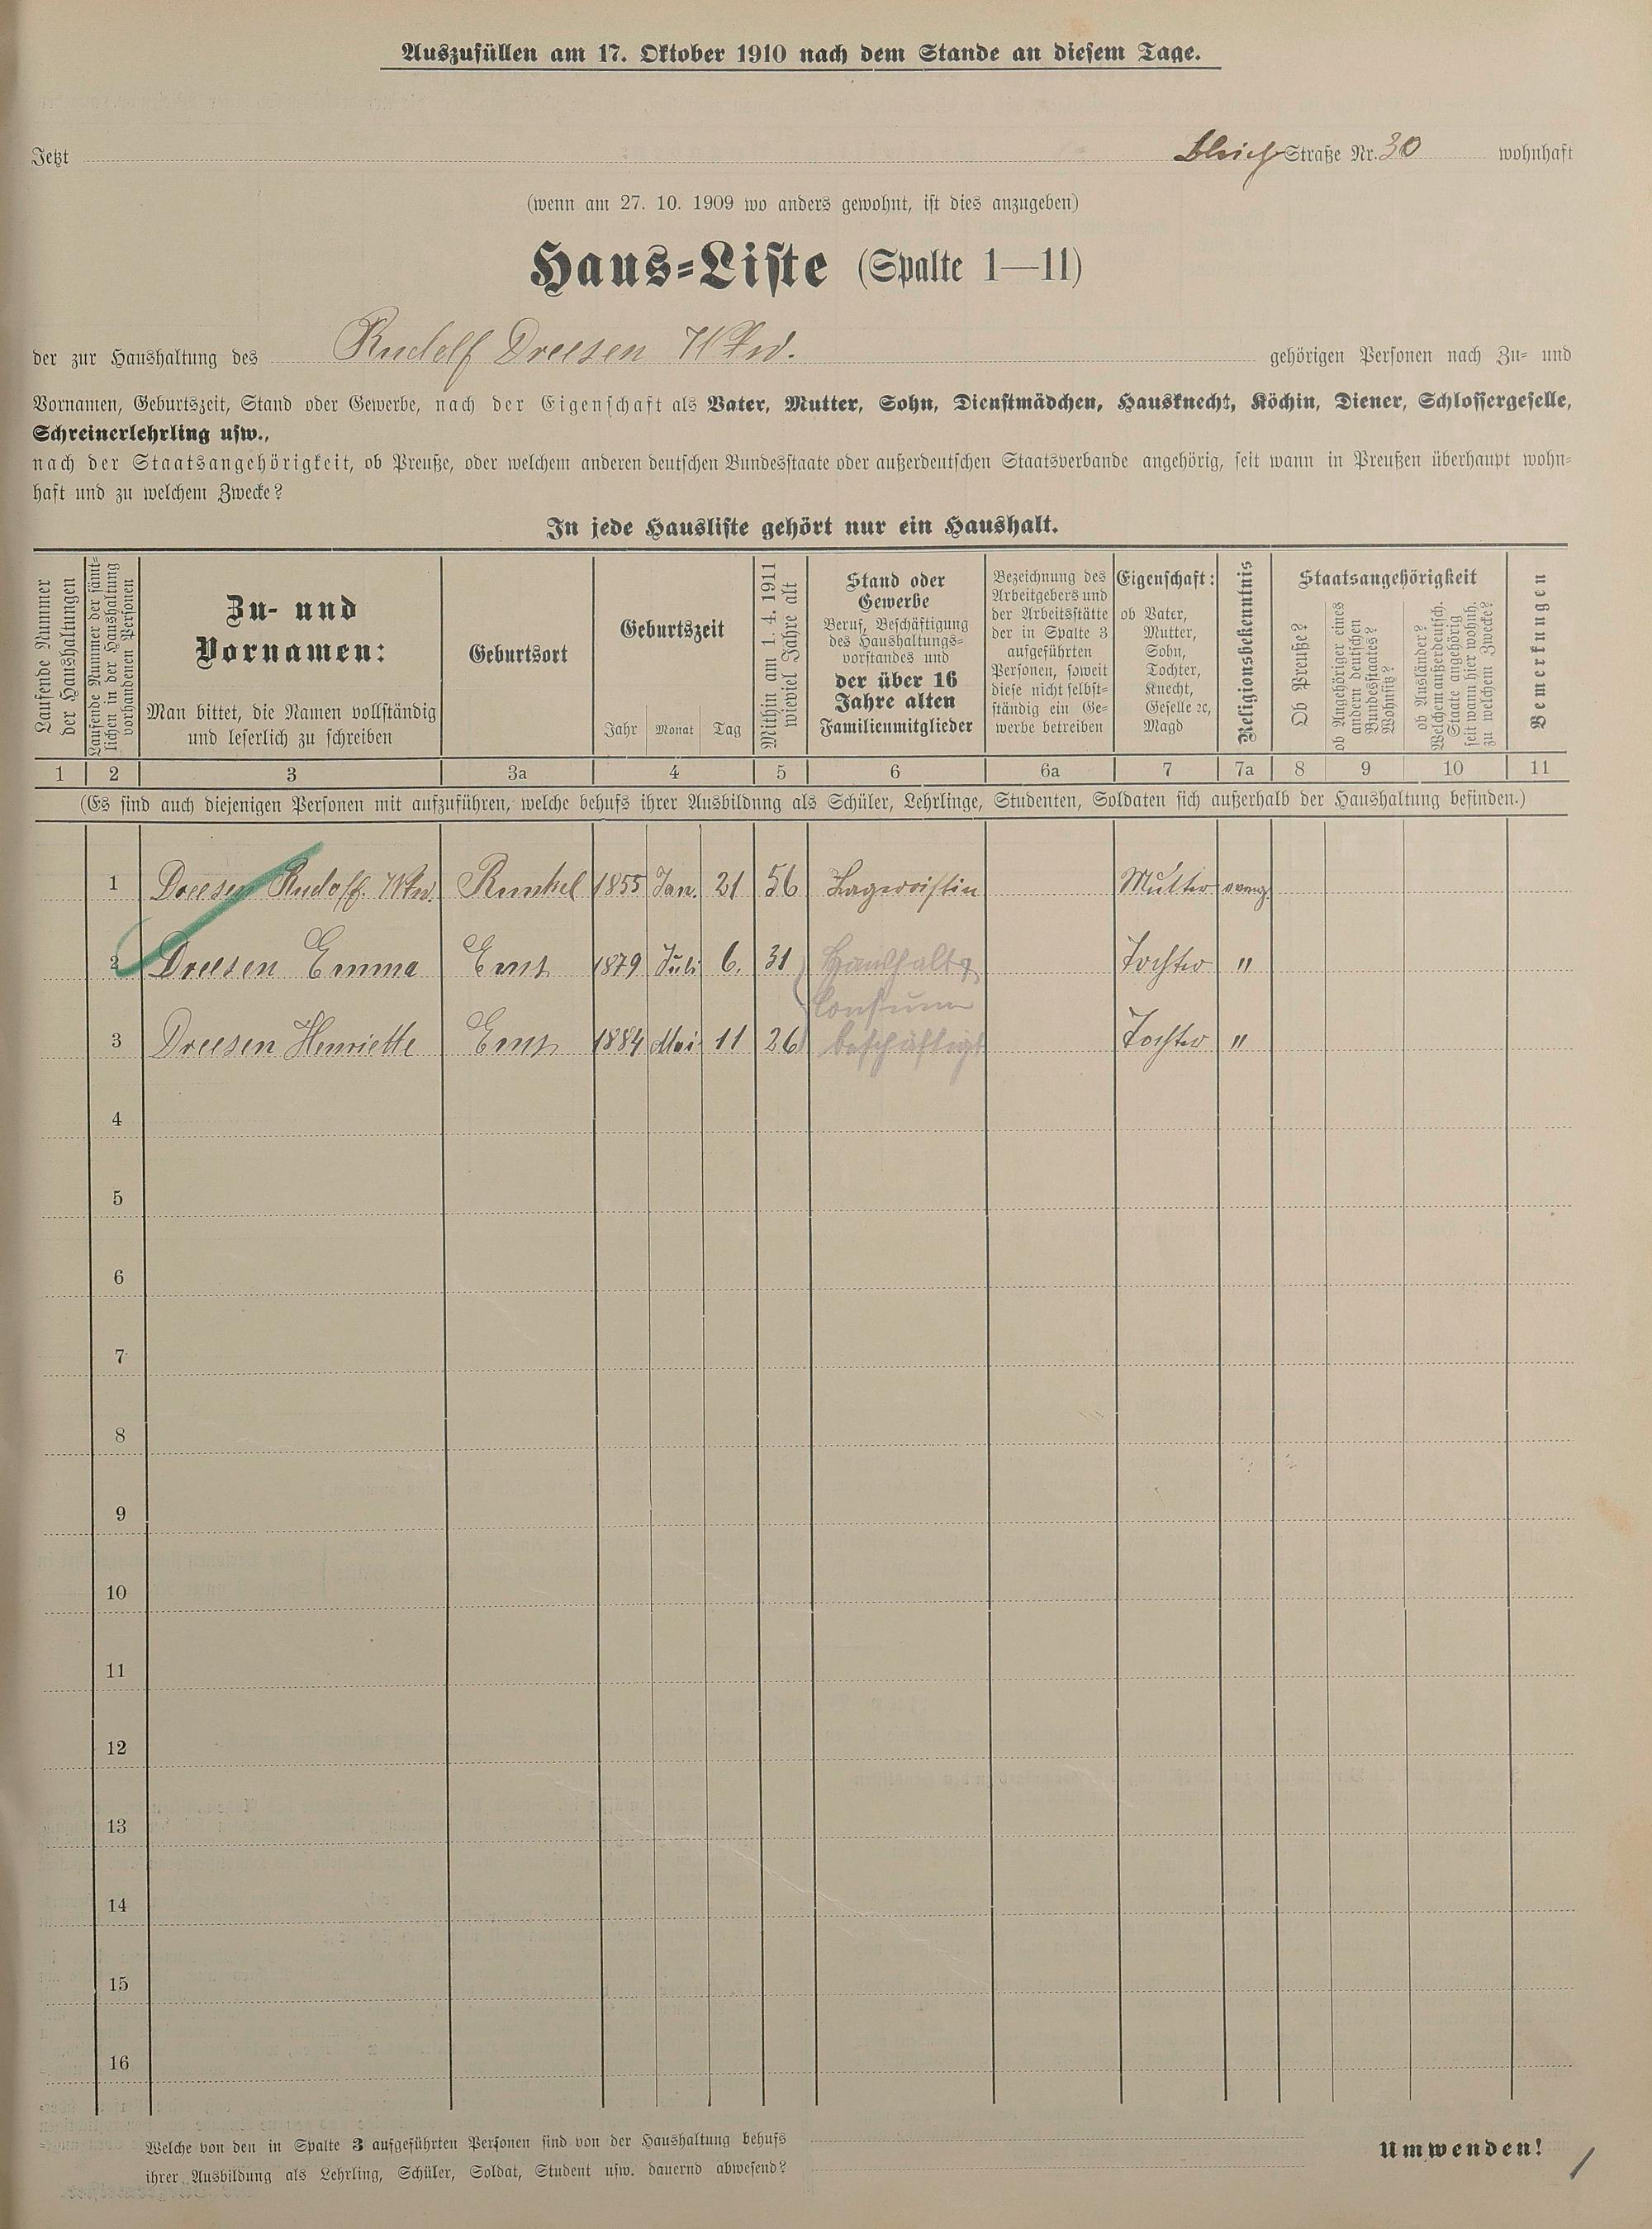 Auszufüllen am 17. Oktober 1910 nach dem Stande an diesem Tage.
Jetzt Bleich Straße Nr. 30 wohnhaft
(wenn am 27. 10. 1909 wo anders gewohnt, ist dies anzugeben)
Haus-Liste (Spalte 1—11)
der zur Haushaltung des Rudolf Dreesen Wtw. gehörigen Personen nach Zu- und
Vornamen, Geburtszeit, Stand oder Gewerbe, nach der Eigenschaft als Vater, Mutter, Sohn, Dienstmädchen, Hausknecht, Köchin, Diener, Schlossergeselle,
Schreinerlehrling usw.,
nach der Staatsangehörigkeit, ob Preuße, oder welchem anderen deutschen Bundesstaate oder außerdeutschen Staatsverbande angehörig, seit wann in Preußen überhaupt wohn-
haft und zu welchem Zwecke?
In jede Hausliste gehört nur ein Haushalt.
Laufende Nummer
der Haushaltungen
Laufende Nummer der sämt-
lichen in der Haushaltung
vorhandenen Personen
Zu- und
Vornamen:
Man bittet, die Namen vollständig
und leserlich zu schreiben
Geburtsort
Geburtszeit
Jahr Monat Tag
Mithin am 1. 4. 1911
wieviel Jahre alt
Stand oder
Gewerbe
Beruf, Beschäftigung
des Haushaltungs-
vorstandes und
der über 16
Jahre alten
Familienmitglieder
Bezeichnung des
Arbeitgebers und
der Arbeitsstätte
der in Spalte 3
aufgeführten
Personen, soweit
diese nicht selbst-
ständig ein Ge-
werbe betreiben
Eigenschaft:
ob Vater,
Mutter,
Sohn,
Tochter,
Knecht,
Geselle ꝛc,
Magd
Religionsbekenntnis
Staatsangehörigkeit
Ob Preuße?
ob Angehöriger eines
andern deutschen
Bundesstaates?
Wohnsitz?
ob Ausländer?
Welchem außerdeutsch.
Staate angehörig
seit wann hier wohnh.
zu welchem Zwecke?
Bemerkungen
1 2 3 3a 4 5 6 6a 7 7a 8 9 10 11
(Es sind auch diejenigen Personen mit aufzuführen, welche behufs ihrer Ausbildung als Schüler, Lehrlinge, Studenten, Soldaten sich außerhalb der Haushaltung befinden.)
1 Dreesen Rudolf. Wtw. Runkel 1855 Jan. 21 56 Lageristin Mutter evang.
2 Dreesen Emma Ems 1879 Juli 6. 31 Haushalt Tochter "
Consum
3 Dreesen Henriette Ems 1884 Mai 11 26 beschäftigt Tochter "
4
5
6
7
8
9
10
11
12
13
14
15
16
Welche von den in Spalte 3 aufgeführten Personen sind von der Haushaltung behufs
ihrer Ausbildung als Lehrling, Schüler, Soldat, Student usw. dauernd abwesend?
Umwenden!